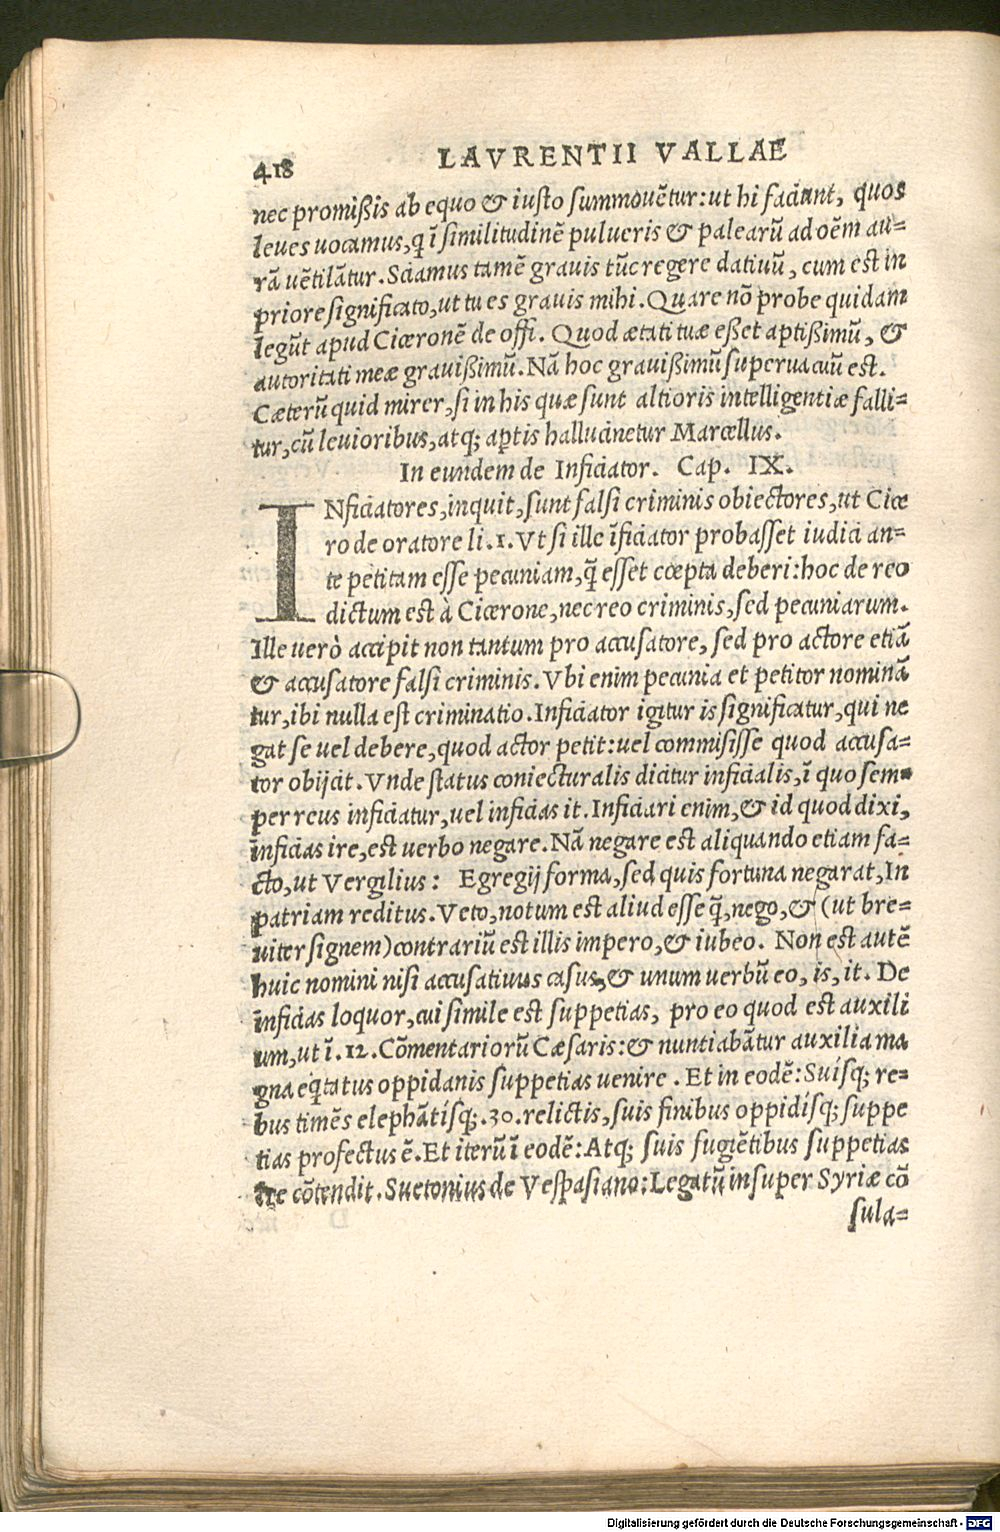 418 LAVRENTII VALLAE
nec promißis ab equo & iusto summouẽtur: ut hi faciunt, quos
leues uocamus, q ĩ similitudinẽ pulueris & palearũ ad oẽm au-
rã uẽtilãtur. Sciamus tamẽ grauis tũc regere datiuũ, cum est in
priore significato, ut tu es grauis mihi. Quare nõ probe quidam
legũt apud Ciceronẽ de offi. Quod ætati tuæ eßet aptißimũ, &
autoritati meæ grauißimũ. Nã hoc grauißimũ superuacuũ est.
Cæterũ quid mirer, si in his quæ sunt altioris intelligentiæ falli-
tur, cũ leuioribus, atq; aptis hallucinetur Marcellus.
In eundem de Inficiator. Cap. IX.
INficiatores, inquit, sunt falsi criminis obiectores, ut Cice
ro de oratore li. 1. Vt si ille ĩficiator probasset iudici an-
te petitam esse pecuniam, q̃ esset cœpta deberi: hoc de reo
dictum est à Cicerone, nec reo criminis, sed pecuniarum.
Ille uerò accipit non tantum pro accusatore, sed pro actore etiã
& accusatore falsi criminis. Vbi enim pecunia et petitor nominã
tur, ibi nulla est criminatio. Inficiator igitur is significatur, qui ne
gat se uel debere, quod actor petit: uel commisisse quod accusa-
tor obijcit. Vnde status coniecturalis dicitur inficialis, ĩ quo sem-
per reus inficiatur, uel inficias it. Inficiari enim, & id quod dixi,
ĩnficias ire, est uerbo negare. Nã negare est aliquando etiam fa-
cto, ut Vergilius: Egregij forma, sed quis fortuna negarat, In
patriam reditus. Veto, notum est aliud esse q̃, nego, & (ut bre-
uiter signem) contrariũ est illis impero, & iubeo. Non est autẽ
huic nomini nisi accusatiuus casus, & unum uerbũ eo, is, it. De
ĩnficias loquor, cui simile est suppetias, pro eo quod est auxili
um, ut ĩ. 12. Cõmentariorũ Cæsaris: & nuntiabãtur auxilia ma
gna eq̃tatus oppidanis suppetias uenire. Et in eodẽ: Suísq; re-
bus timẽs elephãtísq; .30. relictis, suis finibus oppidísq; suppe
tias profectus ẽ. Et iterũ ĩ eodẽ: Atq; suis fugiẽtibus suppetias
ire cõtendit. Suetonius de Vespasiano: Legatũ insuper Syriæ cõ
sula-
Digitalisierung gefördert durch die Deutsche Forschungsgemeinschaft - DFG